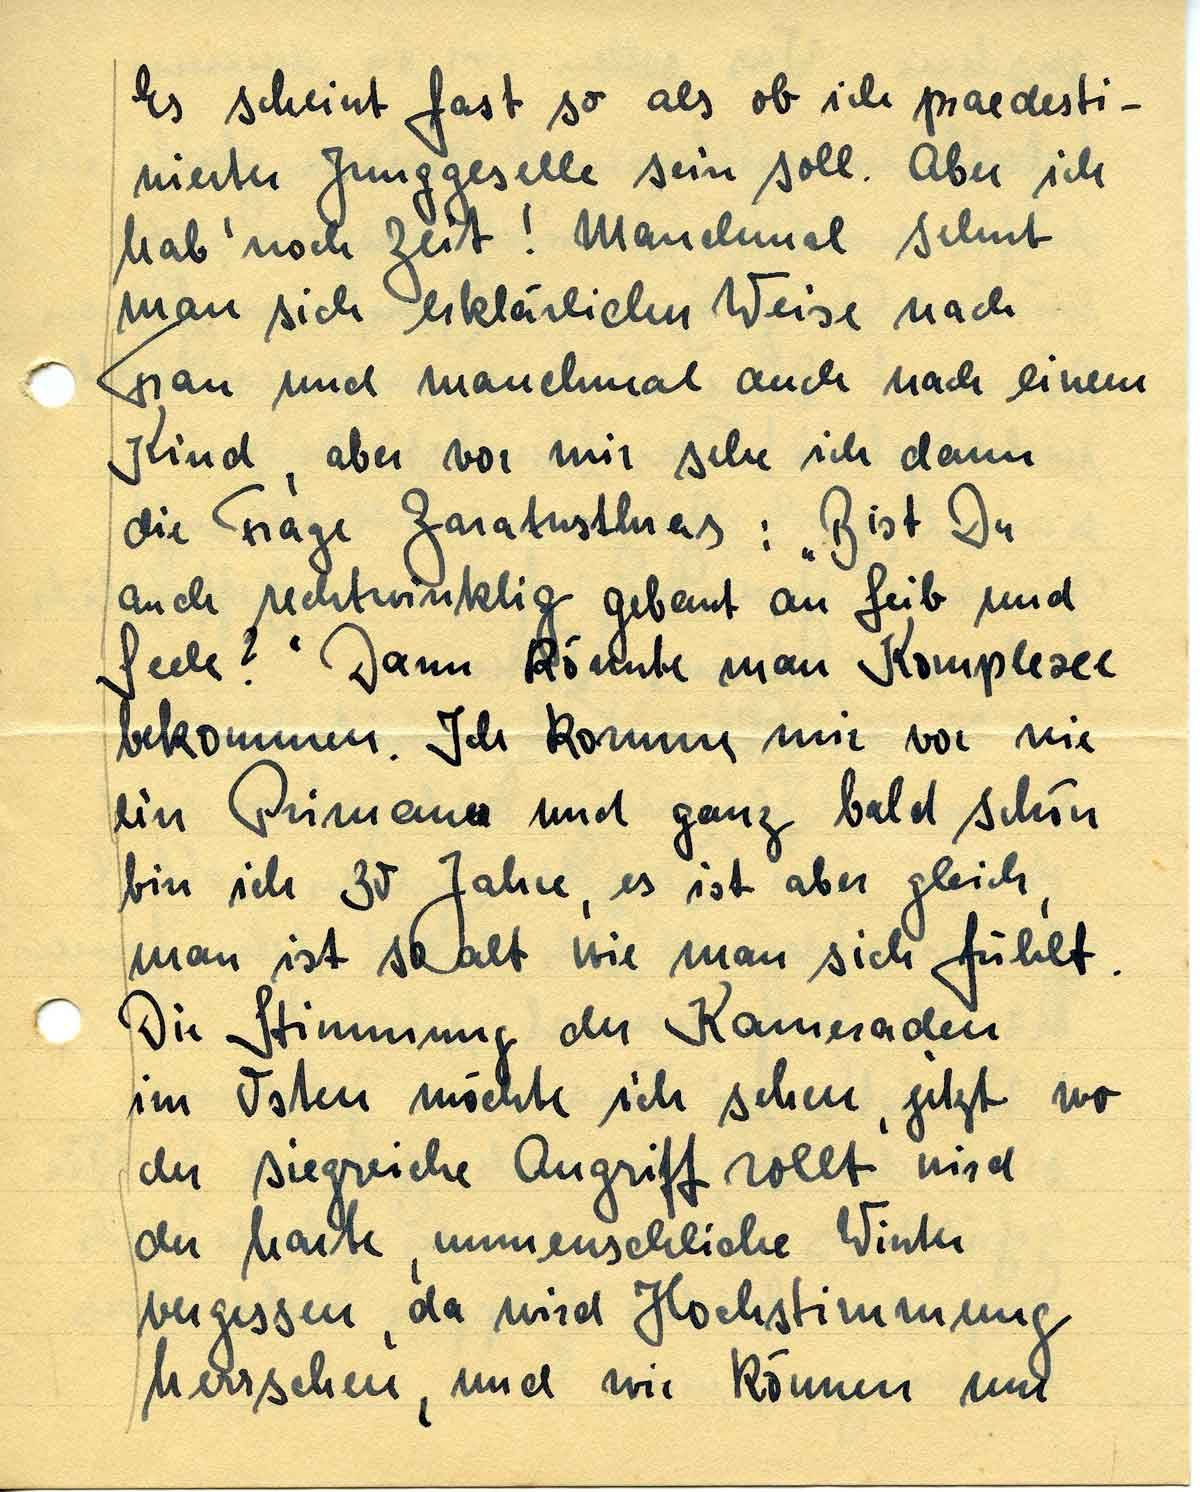 Es scheint fast so als ob ich praedesti-
nierter Junggeselle sein soll. Aber ich
hab' noch Zeit! Manchmal sehnt
man sich erklärlicher Weise nach
Frau und manchmal auch nach einem
Kind, aber vor mir sehe ich dann
die Frage Zarathustras: „Bist Du
auch rechtwinklig gebaut an Leib und
Seele?“ Dann könnte man Komplexe
bekommen. Ich komme mir vor wie
ein Primaner und ganz bald schon
bin ich 30 Jahre, es ist aber gleich,
man ist so alt wie man sich fühlt.
Die Stimmung der Kameraden
im Osten möchte ich sehen, jetzt wo
der siegreiche Angriff rollt wird
der harte, unmenschliche Winter
vergessen, da wird Hochstimmung
herrschen, und wir können nur